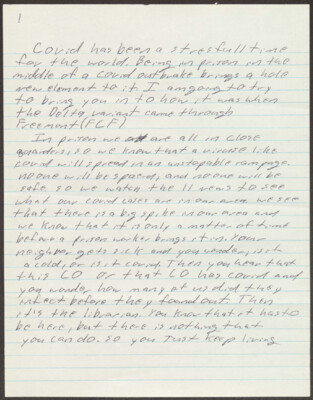 1
Covid has been a stresfull time
for the world. Being in prison in the
middle of a covid outbrake brings a hole
new element to it. I am going to try
to bring you in to how it was when
the Delta variant came through
Freemont (FCF).
In prison we are all in close
so we know that a virouse like
covid will spread in an unstopable rampage.
no one will be spared, and no one will be
safe. so we watch the 11 news to see
what our covid cases are in our area. we see
that there is a big spike in our area and
we know that it is only a matter of time
before a prison worker brings it in. your
neighbor gets sick and you wonder, is it
a cold, or is it covid. Then you hear that
this CO or that CO has covid and
you wonder how many of us did they
infect before they found out. Then
it's the librarian. You know that it has to
be here, but there is nothing that
you can do. so you Just keep living